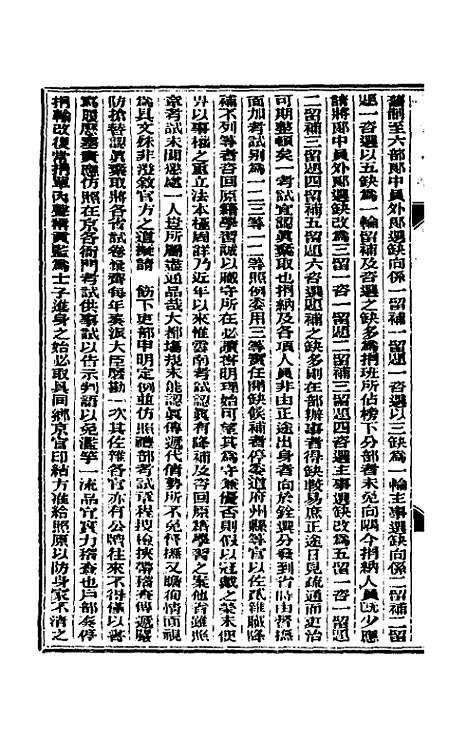 舊制至六部郎中員外郎選缺向係一留補一留題一咨選以三缺爲一輪主事選缺向係二留補二留
題一咨選以五缺爲一輪留補及咨選之缺多爲捐班所佔榜下分部者未免向隅今捐納人員既少應
請將郎中員外郎選缺改爲三留一咨一留題二留補三留題四咨選主事選缺改爲五留一咨一留題
二留補三留題四留補五留題六咨選題補之缺多則在部辦事者得缺較易庶正途日見疏通而吏治
可期整頓矣一考試宜認眞棄取也捐納及各項人員非由正途出身者向於銓選分發到省時由督撫
面加考試別爲一二三等一二等照例委用三等實任開缺候補者停委道府州縣等官以佐貳雜職降
補不列等者咨回原籍學習誠以職守所在必讀書明理始可望其爲守兼優否則假以冠戴之榮未便
畀以事權之重立法本極周詳乃近年以來惟雲南考試認眞有降補及咨回原籍學習之案他省雖照
章考試未聞迸處一人豈所屬盡通品哉大都場規未能認眞傳遞代倩勢所不免督撫又瞻徇情面視
爲具文殊非澄敘官方之道擬請　飭下吏部申明定例並仿照禮部考試章程搜檢挾帶稽查傳遞嚴
防搶替認眞棄取將各省試卷彙齊每年奏派大臣磨勘一次其佐雜各官亦有公牘往來不得僅以書
寫履歷塞責應仿照在京各衙門考試供事試以告示判語以免濫竽一流品宜實力稽查也戶部奏停
捐輸改復常捐單內聲稱貢監爲士子進身之始必取具同鄉京官印結方准給照原以防身家不清之